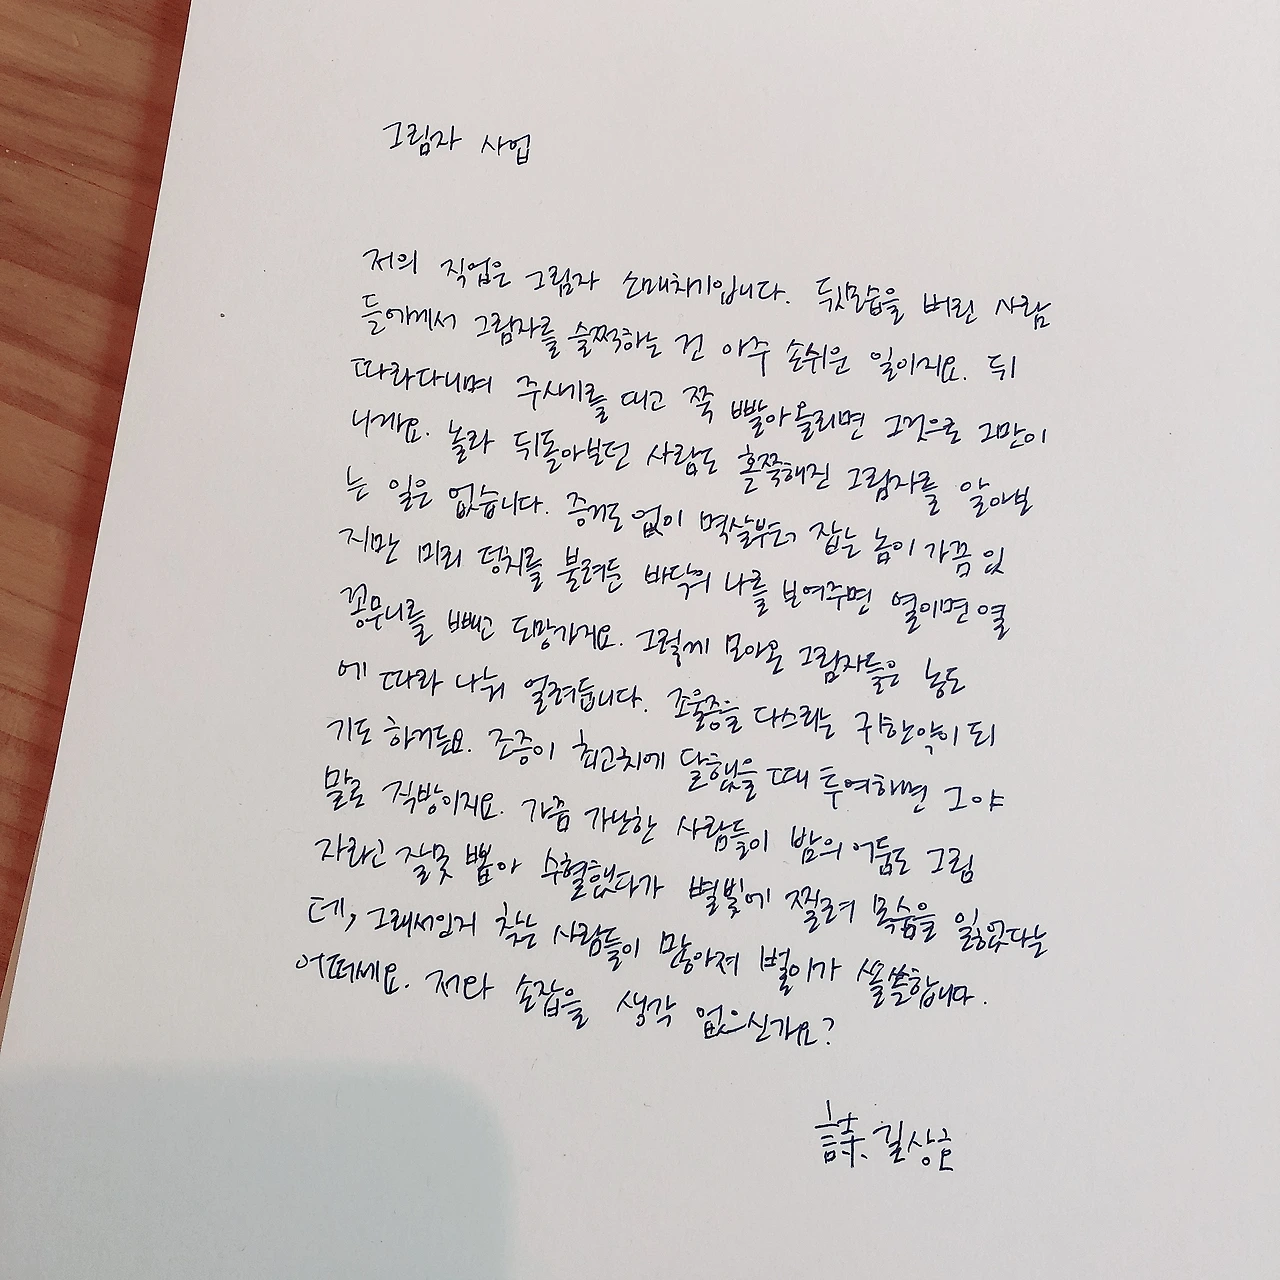 그림자 사업
저의 직업은 그림자 소매치기입니다. 뒷모습을 버린 사람
들에게서 그림자를 슬쩍하는 건 아주 손쉬운 일이지요. 뒤
따라다니며 주사기를 대고 쭉 빨아올리면 그것으로 그만이
니까요. 놀라 뒤돌아보던 사람도 홀쭉해진 그림자를 알아보
는 일은 없습니다. 증거도 없이 멱살부터 잡는 놈이 가끔 있
지만 미리 덩치를 불려둔 바닥의 나를 보여주면 열이면 열
꽁무니를 빼고 도망가지요. 그렇게 모아온 그림자들은 농도
에 따라 나눠 얼려둡니다. 조울증을 다스리는 귀한 약이 되
기도 하거든요. 조증이 최고치에 달했을 때 투여하면 그야
말로 직방이지요. 가끔 가난한 사람들이 밤의 어둠도 그림
자라고 잘못 뽑아 수혈했다가 별빛에 찔려 목숨을 잃었다는
데, 그래서인지 찾는 사람들이 많아져 벌이가 쏠쏠합니다.
어떠세요. 저와 손잡을 생각 없으신가요?
詩. 길상호